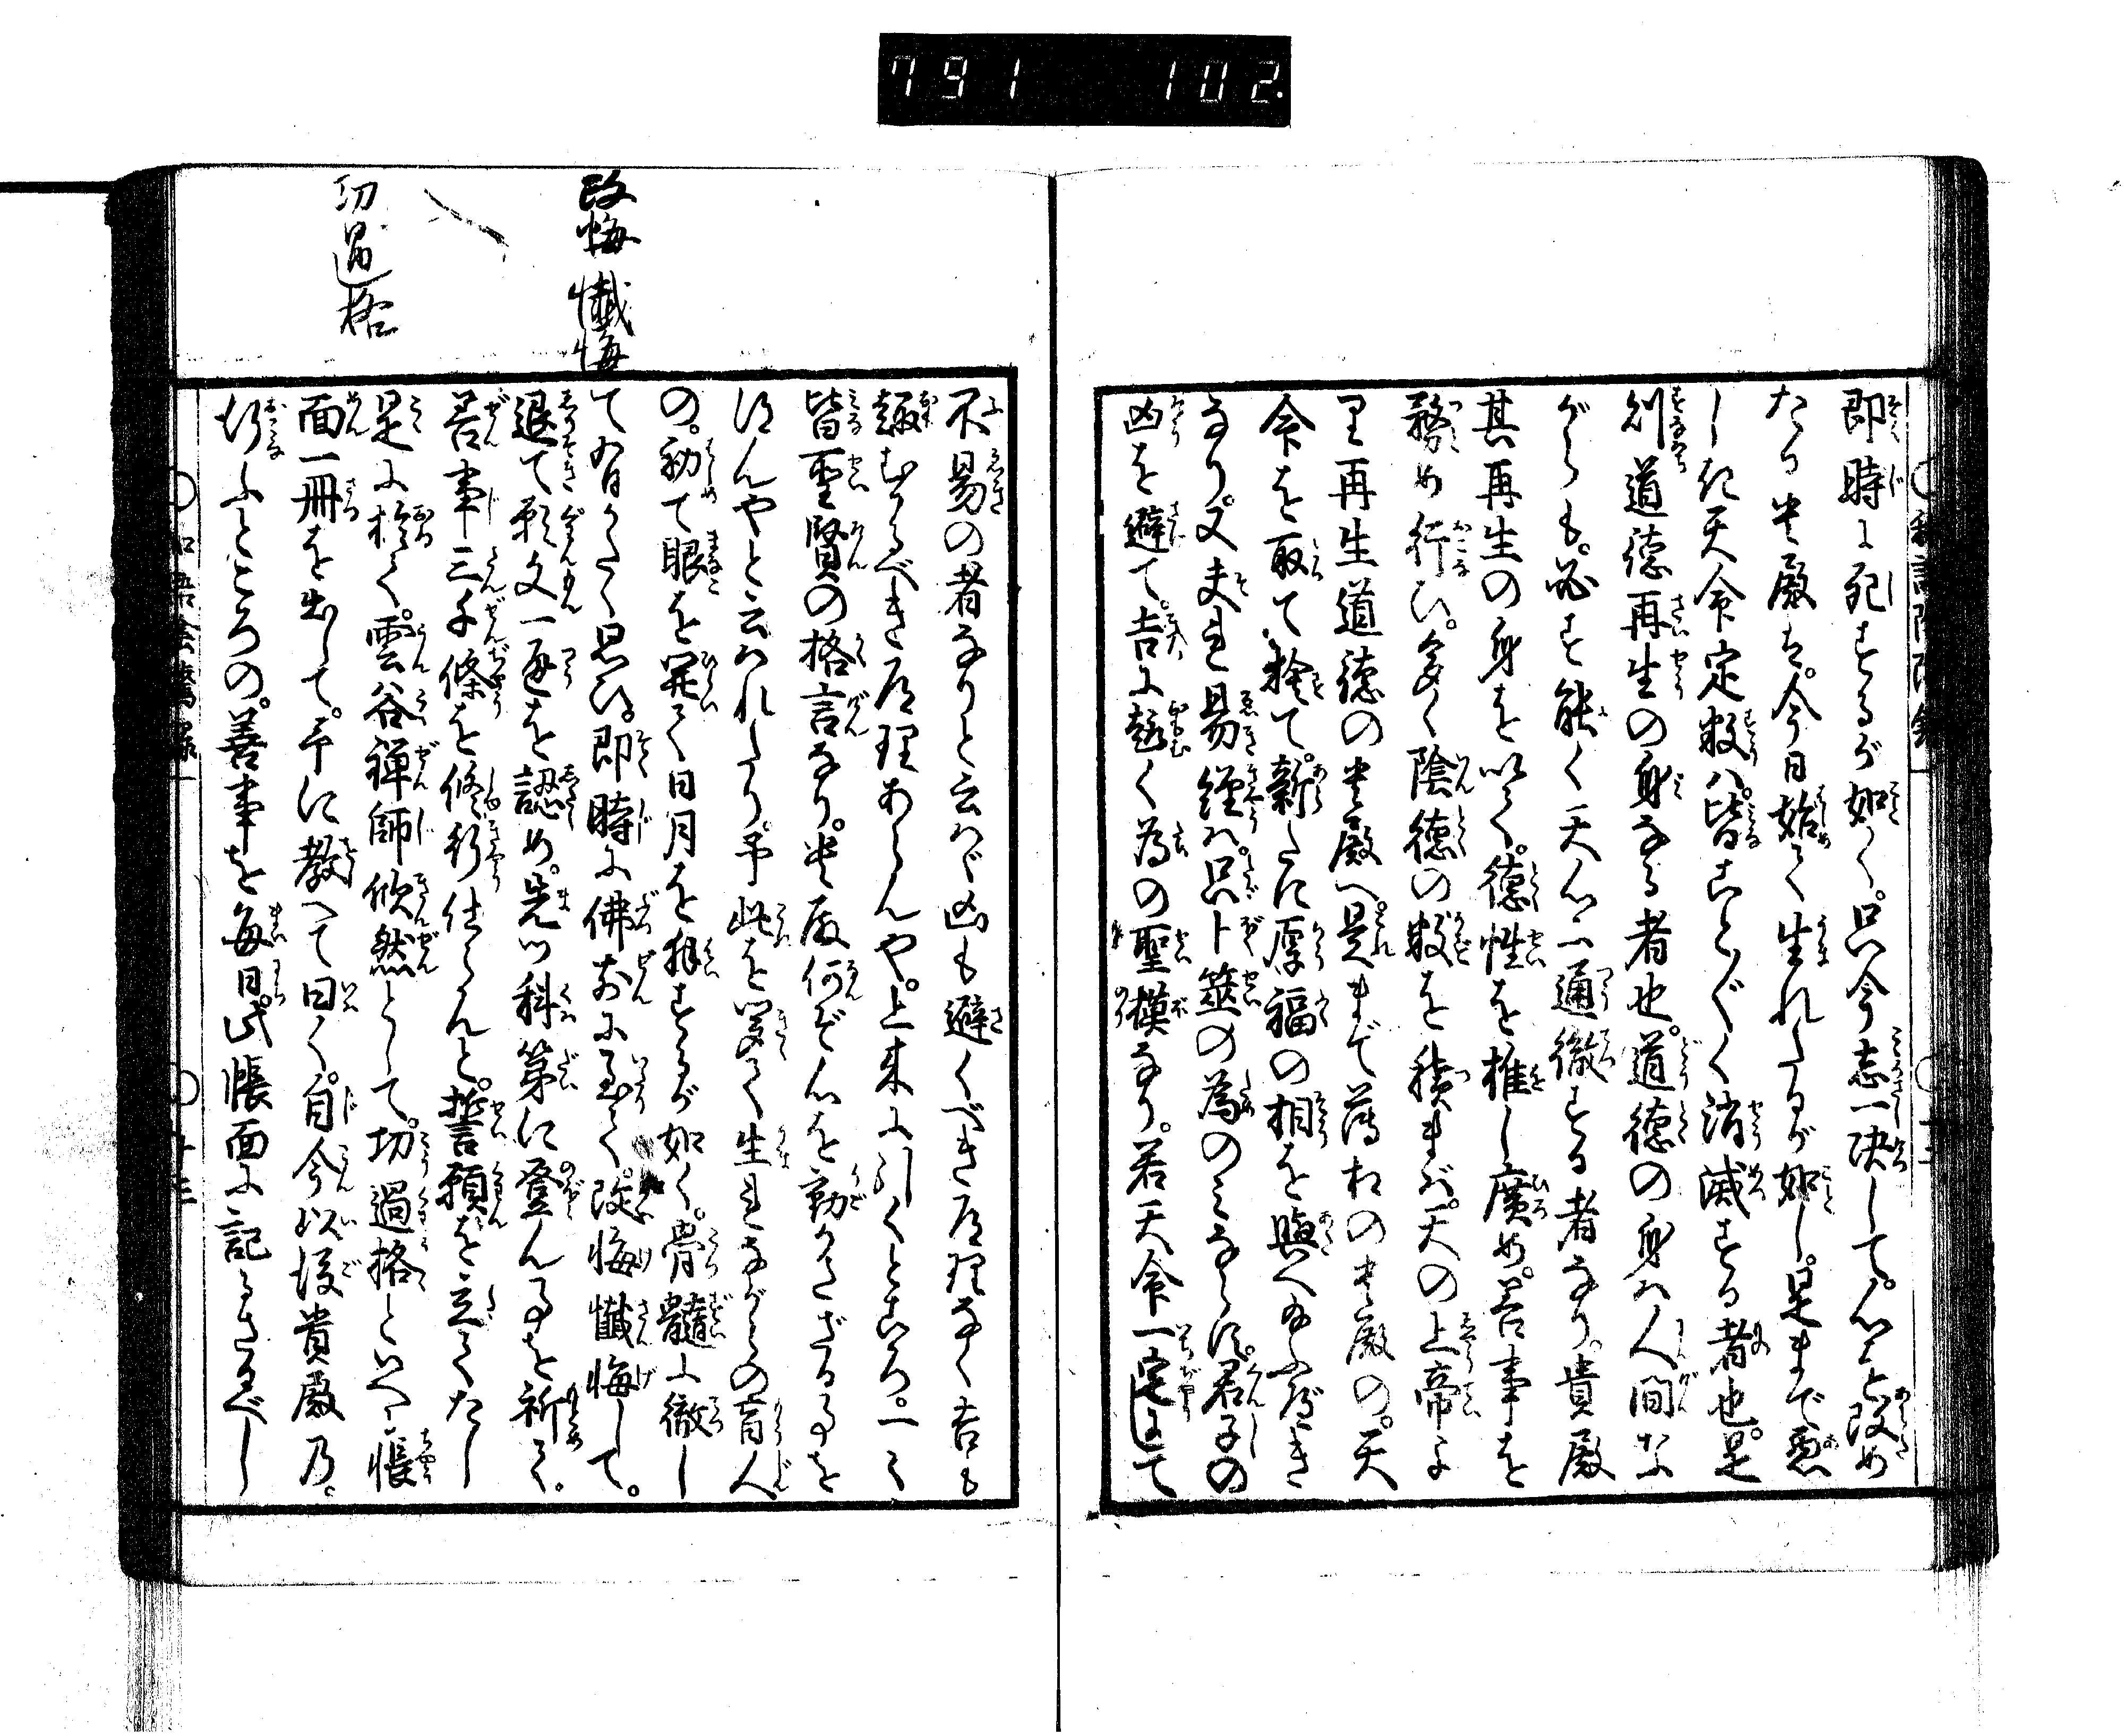 791 102.
即時に死するが如く。只今志一决して。心を改め
たる貴殿は。今日始て生れたるが如し。是まで悪
しき天命定数ハ。皆ことごとく消滅する者也。是
則道徳再生の身なる者也。道徳の身ハ人間な
がらも。必ず能く天心に通徹する者なり。貴殿
其再生の身を以て。徳性を推し廣め。善事を
務め行ひ。多く陰徳の数を積まば。天の上帝よ
り再生道徳の貴殿へ。是まで薄相の貴殿の。天
命を取て捨て。新たに厚福の相を與へ玉ふべき
なり。又夫れ易經ハ。只卜筮の為のみならず。君子の
凶を避て。吉に趨く為の聖模なり。若天命一定して
改悔懺悔
功過格
不易の者なりと云ハゞ凶も避くべき道理なく吉も
趣むくべき道理あらんや。上来に引くところ。一々
皆聖賢の格言なり。貴殿何ぞ心を勤かさざる事を
得んやと云ハれたり。予此を聞て生れながらの盲人
の。初て眼を開て日月を拝するが如く。骨髄に徹し
て有がたく思ひ。即時に佛前に至て。改悔懺悔して。
退て願文一通を認め。先ツ科第に登ん事を祈て。
善事三千條を修行仕らんと。誓願を立てたし
是に於て。雲谷禅師欣然として。功過格といへる帳
面一冊を出して。予に教へて曰く。自今以後貴殿乃。
行ふところの。善事を毎日。此帳面に記るさるべし